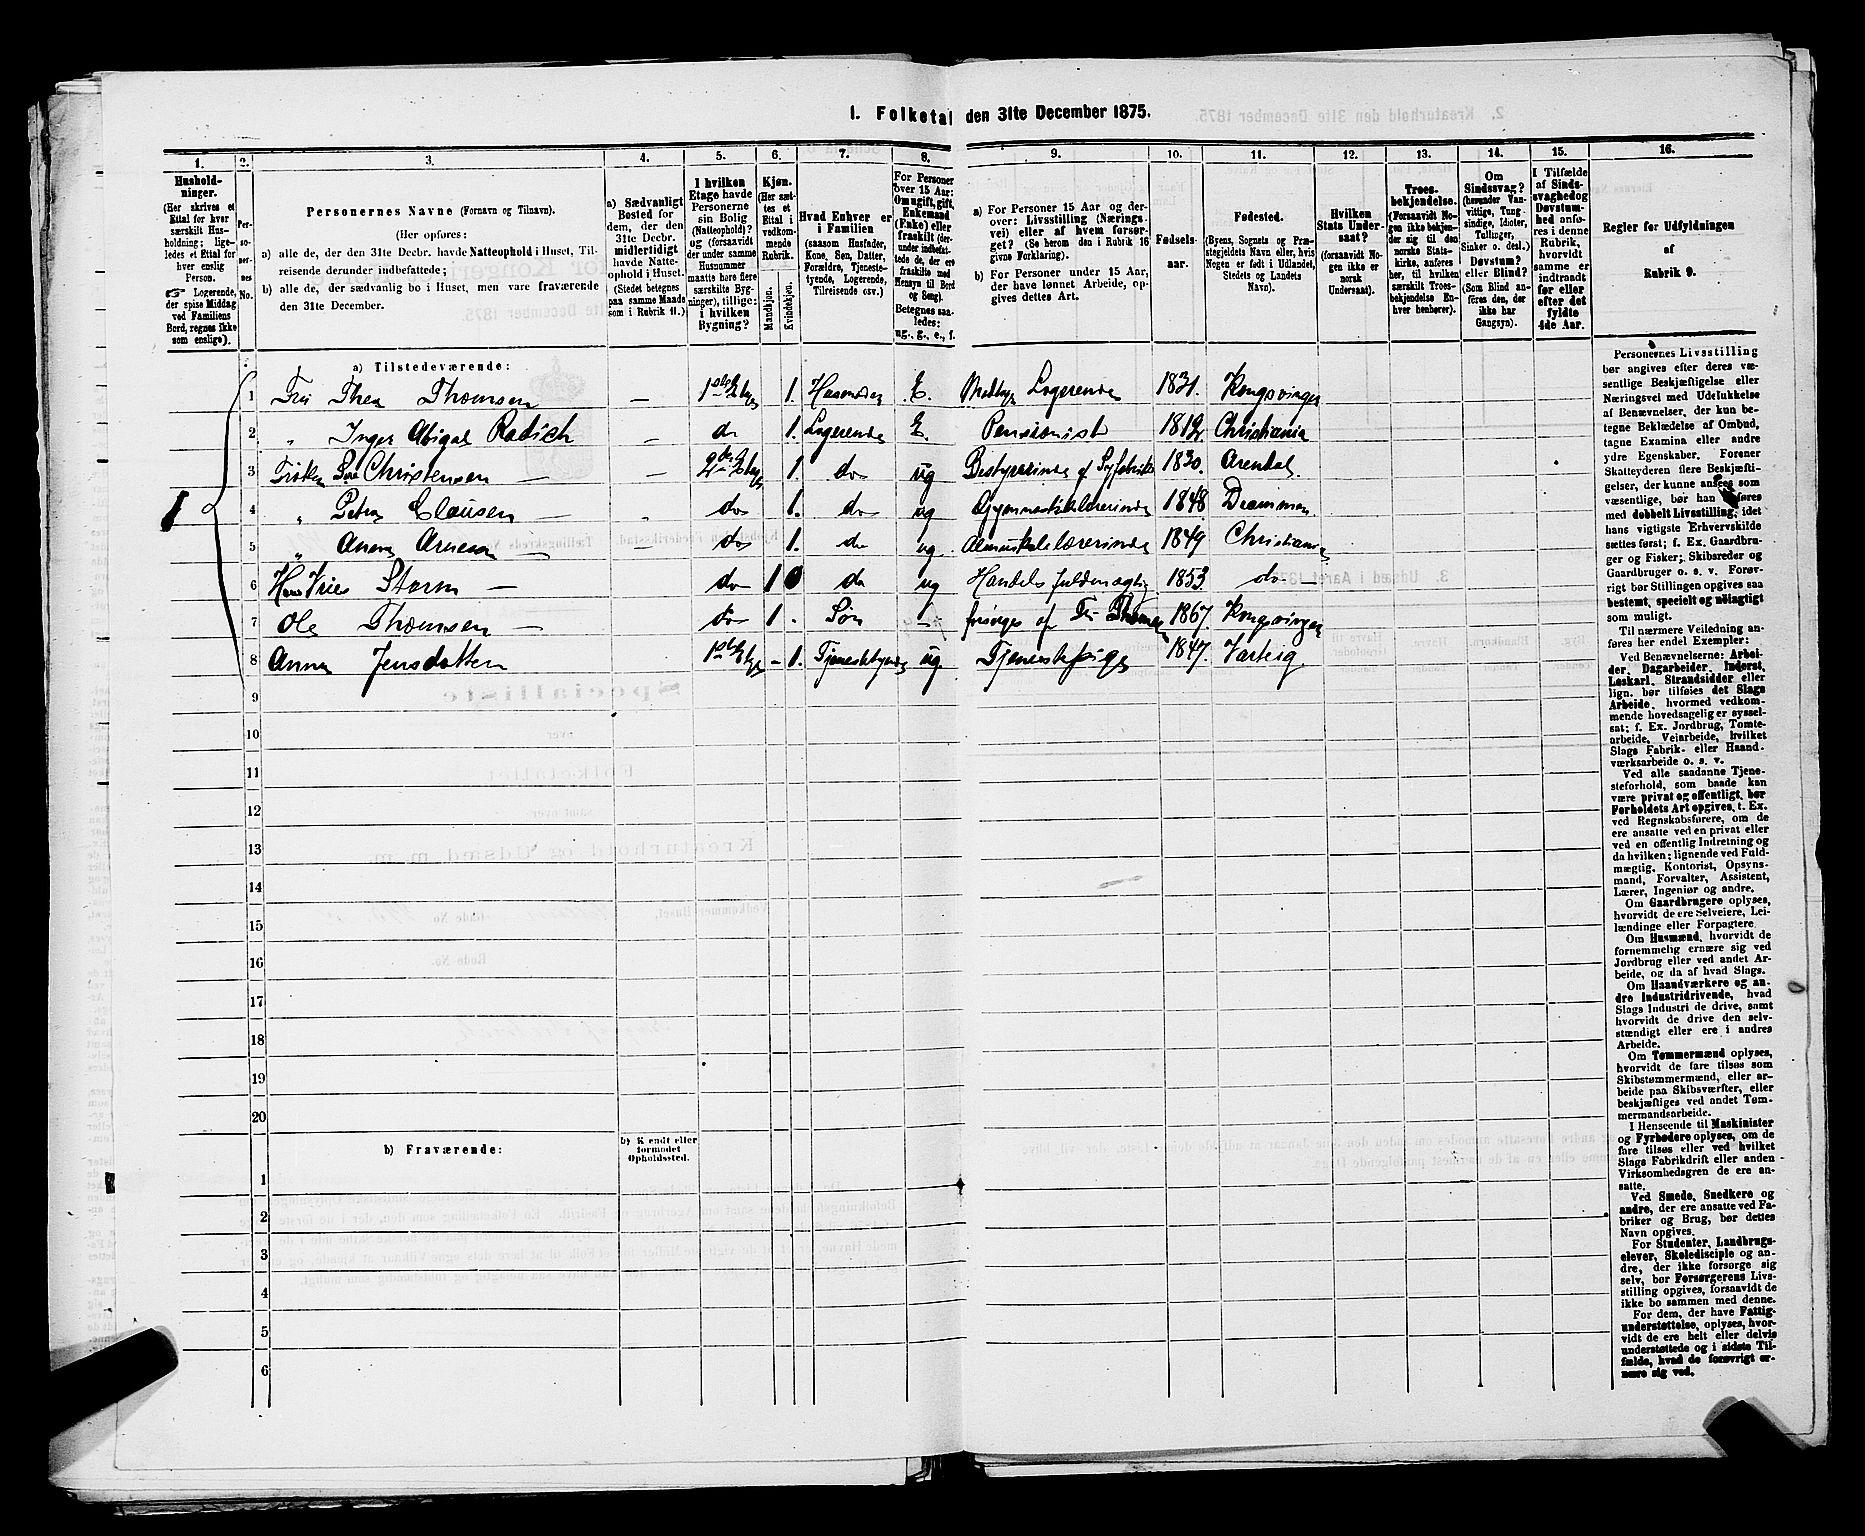 1. Folketal den 31te December 1875.
1. 2. 3. 4. 5. 6. 7. 8. 9. 10. 11. 12. 13. 14. 15. 16.
Hushold-
ninger.
(Her skrives et
Ettal for hver
særskilt Hus-
holdning; lige-
ledes et Ettal for
hver enslig
Person.
☞ Logerende,
der spise Middag
ved Familiens
Bord, regnes ikke
som enslige).
Per-
so-
ner-
nes
No.
Personernes Navne (Fornavn og Tilnavn).
(Her opføres:
a) alle de, der den 31te Decbr. havde Natteophold i Huset, Til-
reisende derunder indbefattede;
b) alle de, der sædvanlig bo i Huset, men vare fraværende
den 31te December.
a) Sædvanligt
Bosted for
dem, der den
31te Decbr.
midlertidigt
havde Natte-
ophold i Huset.
(Stedet betegnes
paa samme Maade
som i Rubrik 11.)
I hvilken
Etage havde
Personerne
sin Bolig
(Natteophold)?
og (forsaavidt
der under samme
Husnummer
maatte høre flere
særskilte Byg-
ninger), tillige:
i hvilken
Bygning?
Kjøn.
(Her sæt-
tes et
Ettal i
vedkom-
mende
Rubrik.
Mandkjøn.
Kvindekjøn.
Hvad Enhver er
i Familien
(saasom Husfader,
Kone, Søn, Datter,
Forældre, Tjeneste-
tyende, Logerende,
Tilreisende osv.)
For Personer
over 15 Aar:
Om ugift, gift,
Enkemand
(Enke) eller
fraskilt (der-
under indbefat-
tede de, der ere
fraskilte med
Hensyn til Bord
og Seng).
Betegnes saa-
ledes:
ug., g., e., f.
a) For Personer 15 Aar og der-
over: Livsstilling (Nærings-
vei) eller af hvem forsør-
get? (Se herom den i Rubrik 16
givne Forklaring).
b) For Personer under 15 Aar,
der have lønnet Arbeide, op-
gives dettes Art.
Fødsels-
aar.
Fødested.
(Byens, Sognets og Præ-
stegjeldets Navn eller, hvis
Nogen er født i Udlandet,
Stedets og Landets
Navn).
Hvilken
Stats Under-
saat?
(forsaavidt No-
gen ikke er
norsk
Undersaat).
Troes-
bekjendelse.
(Forsaavidt No-
gen ikke bekjen-
der sig til den
norske Stats-
kirke, anføres
her, til hvilken
særskilt Troes-
bekjendelse En-
hver henhører).
Om
Sindssvag?
(herunder Van-
vittige, Tung-
sindige, Idioter,
Tullinger,
Sinker o. desl.)
Døvstum?
eller Blind?
(Som Blind an-
føres den, der
ikke har
Gangsyn).
I Tilfælde
af Sinds-
svaghed og
Døvstum-
hed anfø-
res i denne
Rubrik,
hvorvidt
samme er
indtraadt
før eller
efter det
fyldte
4de Aar.
Regler for Udfyldningen
af
Rubrik 9.
a) Tilstedeværende:
1 Fru Thea Thomsen — 1ste Etage 1. Husmoder E. Logerende 1831. Kongsvinger
2 „ Inger Abigal Radich — do 1. Logerende E. Pensionist 1812 Christiania
3 Frøken Christensen — 2den Etage 1. do ug Bestyrerinde af Syfabrik 1830. Arendal
4 „ Petra Clausen — do 1. do ug 1848 Drammen
5 „ Anna Arnesen — do 1. do ug Almuskolelærerinde 1849 Christiania
6 Storm — do 1 0 do ug Handelsfuldmægtig 1853 do —
7 Ole Thomsen — do 1. Søn — forsørges af Fr Thomsen 1867. Kongsvinger
8 Anna Jensdatter 1ste Etage – 1. Tjenestetyende ug Tjenestepige 1847. Varteig
9
10
11
12
13
14
15
16
17
18
19
20
b) Fraværende:
b) Kjendt eller
formodet
Opholdssted.
1
2
3
4
5
6
Personernes Livsstilling
bør angives efter deres væ-
sentlige Beskjæftigelse eller
Næringsvei med Udelukkelse
af Benævnelser, der kun be-
tegne Beklædelse af Ombud,
tagne Examina eller andre
ydre Egenskaber. Forener
Skatteyderen flere Beskjæfti-
gelser, der kunne ansees som
væsentlige, bør han opføres
med dobbelt Livsstilling, idet
hans vigtigste Erhvervskilde
sættes først; f. Ex. Gaardbru-
ger og Fisker; Skibsreder og
Gaardbruger o. s. v. Forøv-
rigt bør Stillingen opgives saa
bestemt, specielt og nøiagtigt
som muligt.
Til nærmere Veiledning an-
føres her endel Exempler:
Ved Benævnelserne: Arbei-
der, Dagarbeider, Inderst,
Løskarl, Strandsidder eller
lign. bør tilføies det Slags
Arbeide, hvormed vedkom-
mende hovedsagelig er syssel-
sat; f. Ex. Jordbrug, Tomte-
arbeide, Veiarbeide, hvilket
Slags Fabrik- eller Haand-
værksarbeide o. s. v.
Ved alle saadanne Tjene-
steforhold, som baade kan
være privat og offentligt, bør
Forholdets Art opgives, t. Ex.
ved Regnskabsførere, om de
ere ansatte ved en privat eller
ved en offentlig Indretning og
da hvilken; lignende ved Fuld-
mægtig, Kontorist, Opsyns-
mand, Forvalter, Assistent,
Lærer, Ingeniør og andre.
Om Gaardbrugere oplyses,
hvorvidt de ere Selveiere, Lei-
lændinge eller Forpagtere.
Om Husmænd, hvorvidt de
fornemmelig ernære sig ved
Jordbrug eller ved andet Ar-
beide, og da af hvad Slags.
Om Haandværkere og an-
dre Industridrivende, hvad
Slags Industri de drive, samt
hvorvidt de drive den selv-
stændigt eller ere i andres
Arbeide.
Om Tømmermænd oplyses,
hvorvidt de fare tilsøs som
Skibstømmermænd, eller ar-
beide paa Skibsværfter, eller
beskjæftiges ved andet Tøm-
mermandsarbeide.
I Henseende til Maskinister
og Fyrbødere oplyses, om de
fare tilsøs eller ved hvilket
Slags Fabrikdrift eller anden
Virksomhedsgren de ere an-
satte.
Ved Smede, Snedkere og
andre, der ere ansatte ved Fa-
briker og Brug, bør dettes
Navn opgives.
For Studenter, Landbrugs-
elever, Skoledisciple og an-
dre, der ikke forsørge sig
selv, bør Forsørgerens Livs-
stilling opgives, forsaavidt de
ikke bo sammen med denne.
For dem, der have Fattig-
understøttelse, oplyses, hvor-
vidt de ere helt eller delvis
understøttede og i sidste Til-
fælde, hvad de forøvrigt er-
nære sig ved.